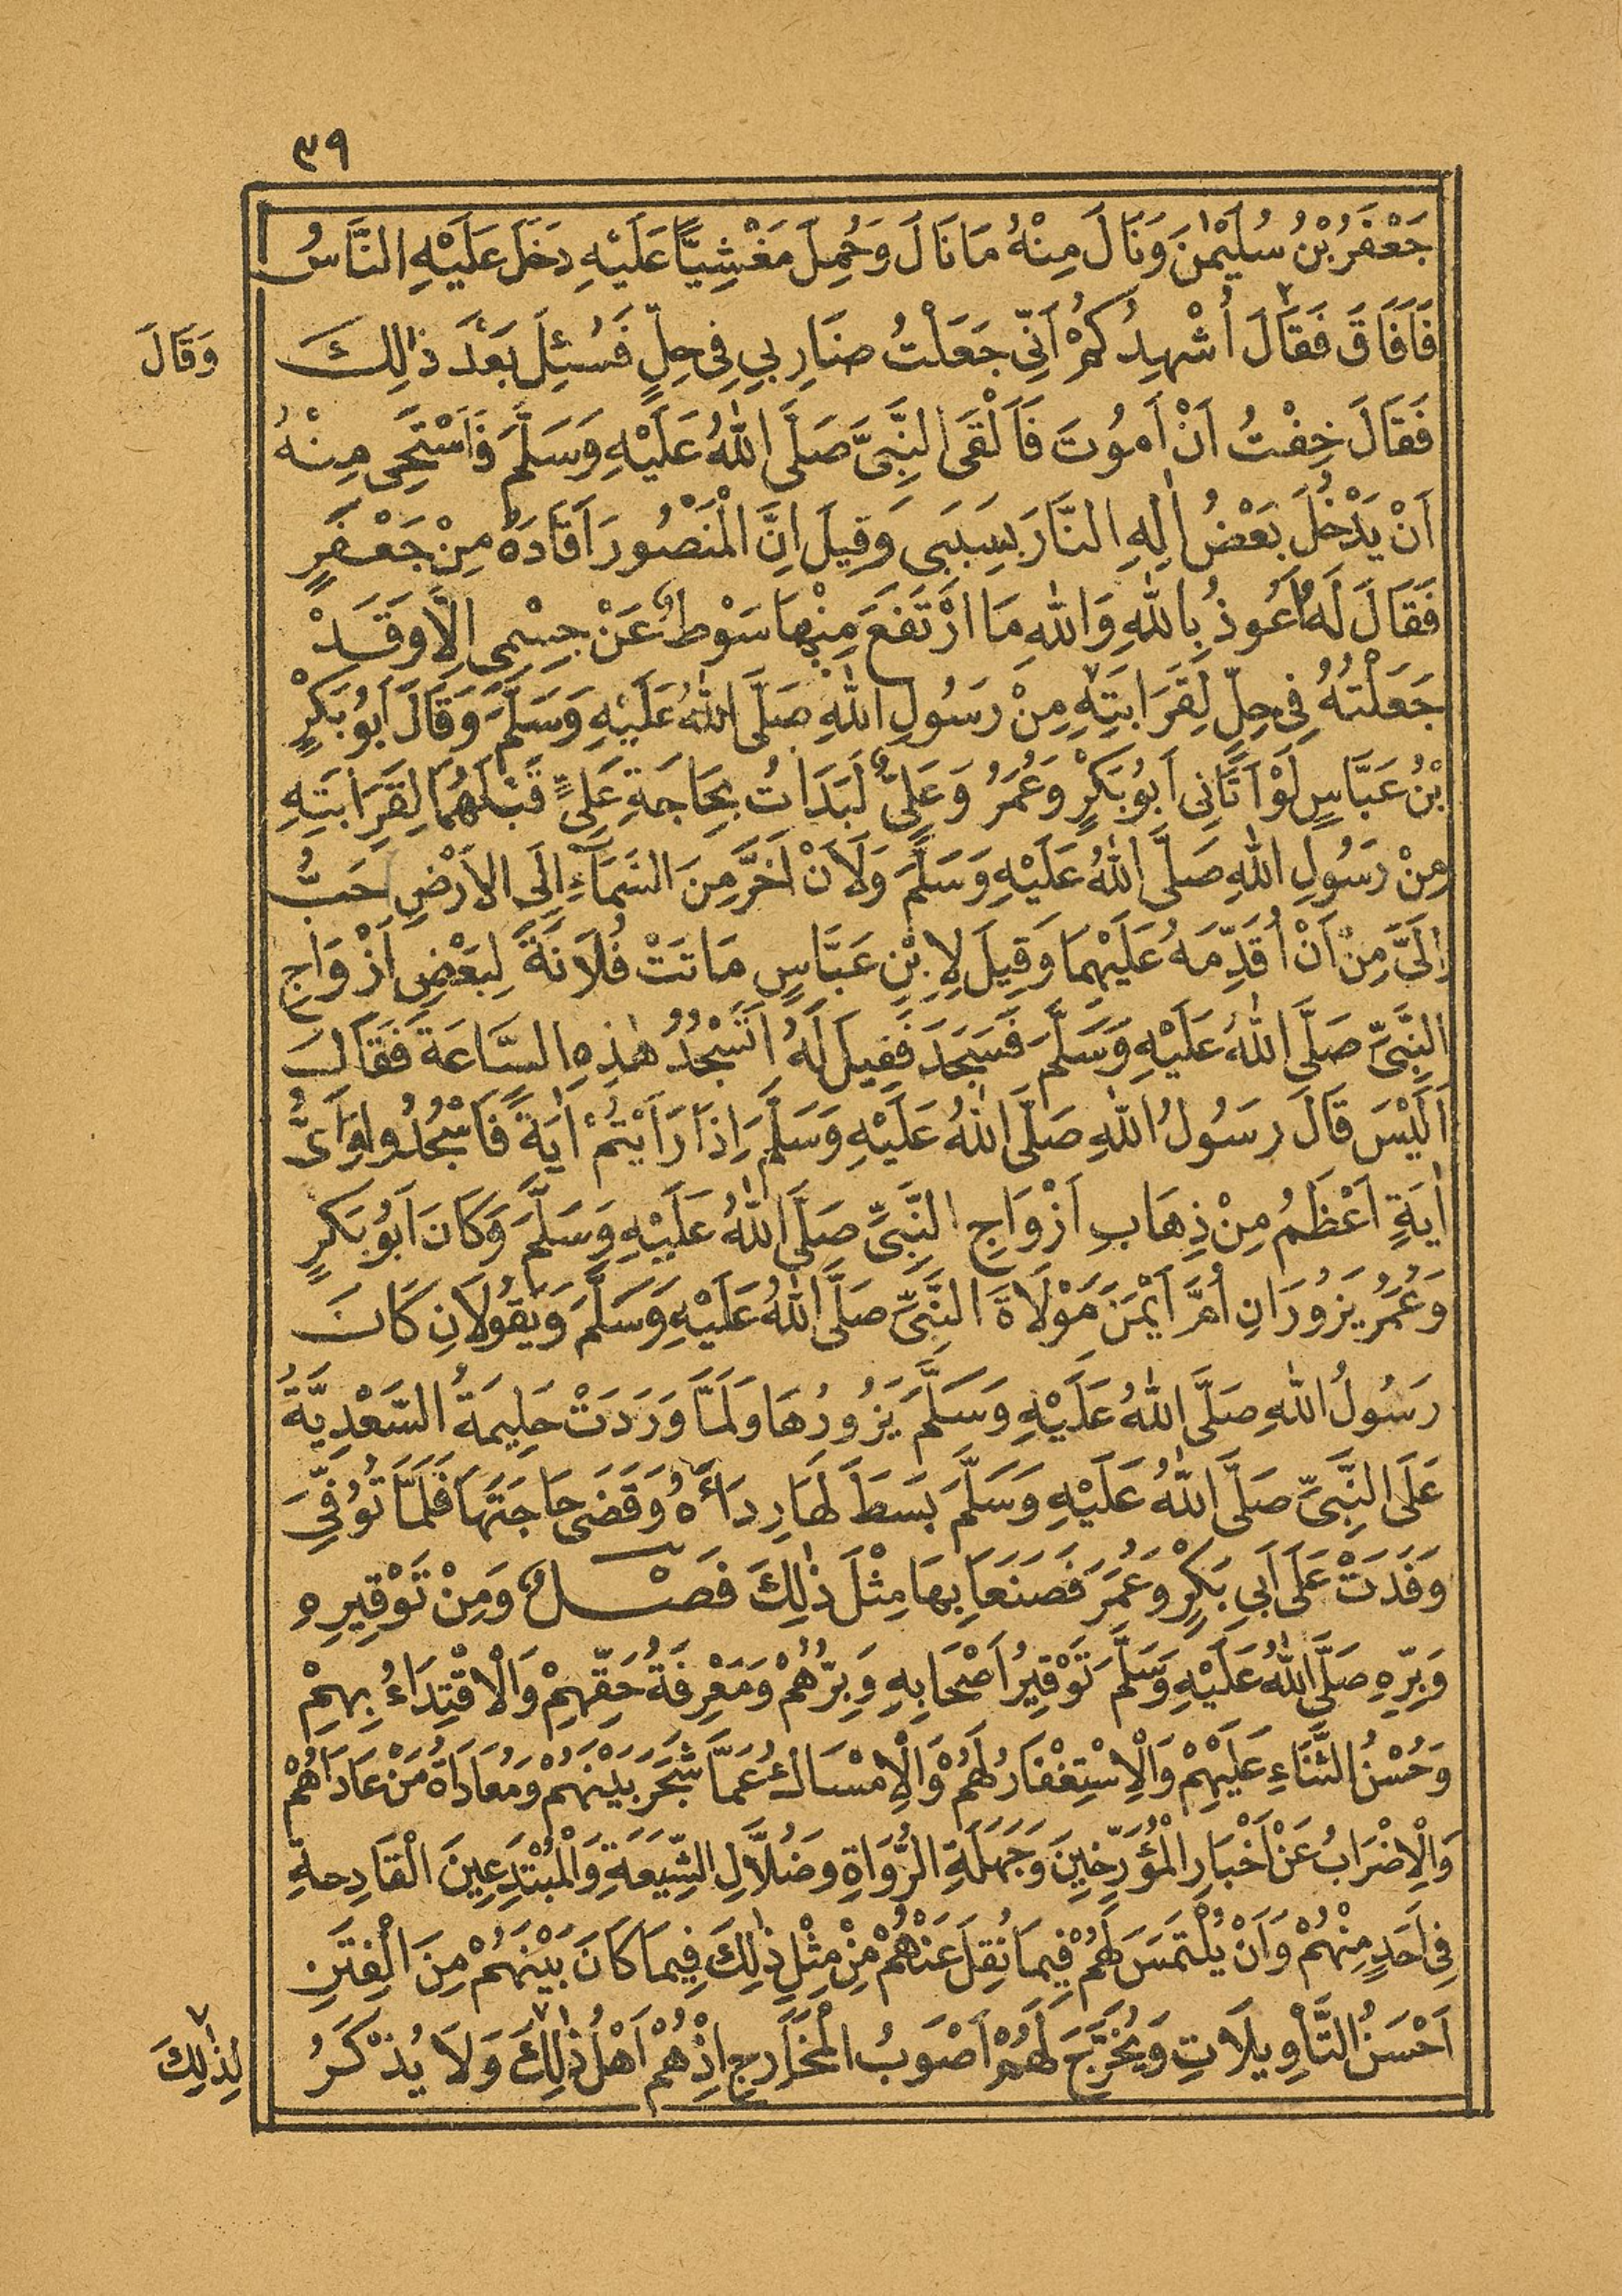 ٣٩
جَعْفَرُ بْنُ سُلَيْمٰنَ وَنَالَ مِنْهُ مَا نَالَ وَحُمِلَ مَغْشِيًّا عَلَيْهِ دَخَلَ عَلَيْهِ النَّاسُ
فَاَفَاقَ فَقَالَ اُشْهِدُكُمْ اَنّٖى جَعَلْتُ ضَارِبِي فِى حِلٍّ فَسُئِلَ بَعْدَ ذٰلِكَ
وَقَالَ
فَقَالَ خِفْتُ اَنْ اَمُوتَ فَاَلْقَى النَّبِىَّ صَلَّى اللّٰهُ عَلَيْهِ وَسَلَّمَ فَاَسْتَحْىٖ مِنْهُ
اَنْ يَدْخُلَ بَعْضُ اٰلِهِ النَّارَ بِسَبَبِى وَقِيلَ اِنَّ الْمَنْصُورَ اَقَادَهُ مِنْ جَعْفَرٍ
فَقَالَ لَهُ اَعُوذُ بِاللّٰهِ وَاللّٰهِ مَا ارْتَفَعَ مِنْهَا سَوْطٌ عَنْ جِسْمِى اِلَّا وَقَدْ
جَعَلْتُهُ فِى حِلٍّ لِقَرَابَتِهِ مِنْ رَسُولِ اللّٰهِ صَلَّى اللّٰهُ عَلَيْهِ وَسَلَّمَ وَقَالَ اَبُو بَكْرِ
بْنُ عَبَّاسٍ لَوْ اَتَانِى اَبُو بَكْرٍ وَعُمَرُ وَعَلِىٌّ لَبَدَاْتُ بِحَاجَةِ عَلِىٍّ قَبْلَهُمَا لِقَرَابَتِهِ
مِنْ رَسُولِ اللّٰهِ صَلَّى اللّٰهُ عَلَيْهِ وَسَلَّمَ وَلَاَنْ اَخِرَّ مِنَ السَّمَاءِ اِلَى الْاَرْضِ اَحَبُّ
اِلَىَّ مِنْ اَنْ اُقَدِّمَهُ عَلَيْهِمَا وَقِيلَ لِابْنِ عَبَّاسٍ مَاتَتْ فُلَانَةُ لِبَعْضِ اَزْوَاجِ
النَّبِىِّ صَلَّى اللّٰهُ عَلَيْهِ وَسَلَّمَ فَسَجَدَ فَقِيلَ لَهُ اَتَسْجُدُ هٰذِهِ السَّاعَةَ فَقَالَ
اَلَيْسَ قَالَ رَسُولُ اللّٰهِ صَلَّى اللّٰهُ عَلَيْهِ وَسَلَّمَ اِذَا رَاَيْتُمْ اٰيَةً فَاسْجُدُوا وَاَىُّ
اٰيَةٍ اَعْظَمُ مِنْ ذِهَابِ اَزْوَاجِ النَّبِىِّ صَلَّى اللّٰهُ عَلَيْهِ وَسَلَّمَ وَكَانَ اَبُو بَكْرٍ
وَعُمَرُ يَزُورَانِ اُمَّ اَيْمَنَ مَوْلَاةَ النَّبِىِّ صَلَّى اللّٰهُ عَلَيْهِ وَسَلَّمَ وَيَقُولَانِ كَانَ
رَسُولُ اللّٰهِ صَلَّى اللّٰهُ عَلَيْهِ وَسَلَّمَ يَزُورُهَا وَلَمَّا وَرَدَتْ حَلِيمَةُ السَّعْدِيَّةُ
عَلَى النَّبِىِّ صَلَّى اللّٰهُ عَلَيْهِ وَسَلَّمَ بَسَطَ لَهَا رِدَاءَهُ وَقَضَى حَاجَتَهَا فَلَمَّا تُوُفِّىَ
وَفَدَتْ عَلَى اَبِى بَكْرٍ وَعُمَرَ فَصَنَعَا بِهَا مِثْلَ ذٰلِكَ فَصْلٌ وَمِنْ تَوْقِيرِهِ
وَبِرِّهِ صَلَّى اللّٰهُ عَلَيْهِ وَسَلَّمَ تَوْقِيرُ اَصْحَابِهِ وَبِرُّهُمْ وَمَعْرِفَةُ حَقِّهِمْ وَالْاِقْتِدَاءُ بِهِمْ
وَحُسْنُ الثَّنَاءِ عَلَيْهِمْ وَالْاِسْتِغْفَارُ لَهُمْ وَالْاِمْسَاكُ عَمَّا شَجَرَ بَيْنَهُمْ وَمُعَادَاةُ مَنْ عَادَاهُمْ
وَالْاِضْرَابُ عَنْ اَخْبَارِ الْمُؤَرِّخِينَ وَجَهَلَةِ الرُّوَاةِ وَضُلَّالِ الشِّيعَةِ وَالْمُبْتَدِعِينَ الْقَادِحَةِ
فِى اَحَدٍ مِنْهُمْ وَاَنْ يُلْتَمَسَ لَهُمْ فِيمَا نُقِلَ عَنْهُمْ مِنْ مِثْلِ ذٰلِكَ فِيمَا كَانَ بَيْنَهُمْ مِنَ الْفِتَنِ
اَحْسَنُ التَّأْوِيلَاتِ وَيُخَرَّجَ لَهُمْ اَصْوَبُ الْمَخَارِجِ اِذْ هُمْ اَهْلُ ذٰلِكَ٧ وَلَا يُذْكَرُ
٧ لِذٰلِكَ